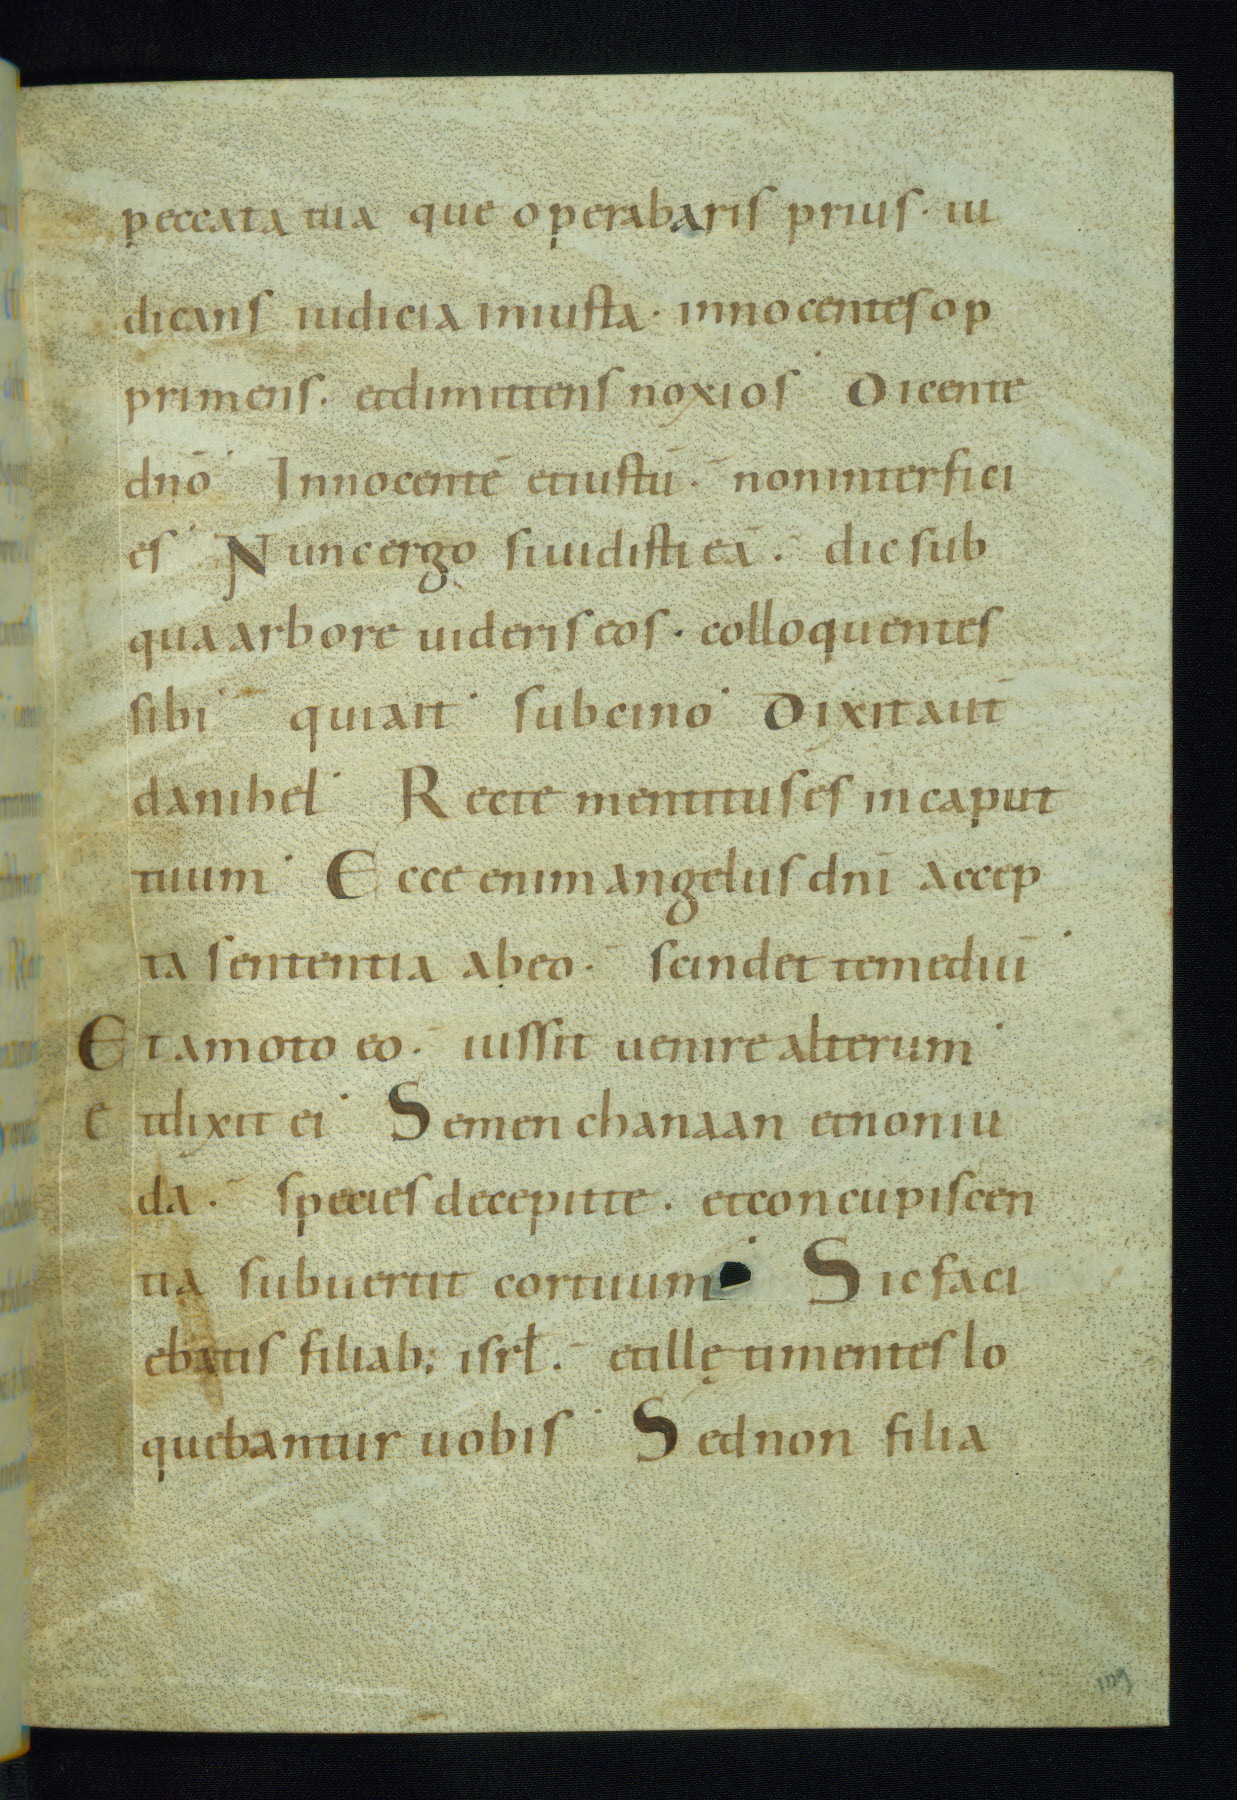 peccata tua que operabaris prius · iu
dicans iudicia iniusta · innocentes op
primens · et dimittens noxios Dicente
dnō Innocentē et iustū · non interfici
es Nunc ergo si uidisti eā · dic sub
qua arbore uideris eos · colloquentes
sibi qui ait sub cino Dixit aut̄
danihel Recte mentitus es in caput
tuum Ecce enim angelus dnī accep
ta sententia ab eo · scindet te mediū
Et amoto eo · iussit uenire alterum
et dixit ei Semen chanaan et non iu
da · species decepit te · et concupiscen
tia subuertit cor tuum Sic faci
ebatis filiab; isrł · et illę timentes lo
quebantur uobis Sed non filia
109